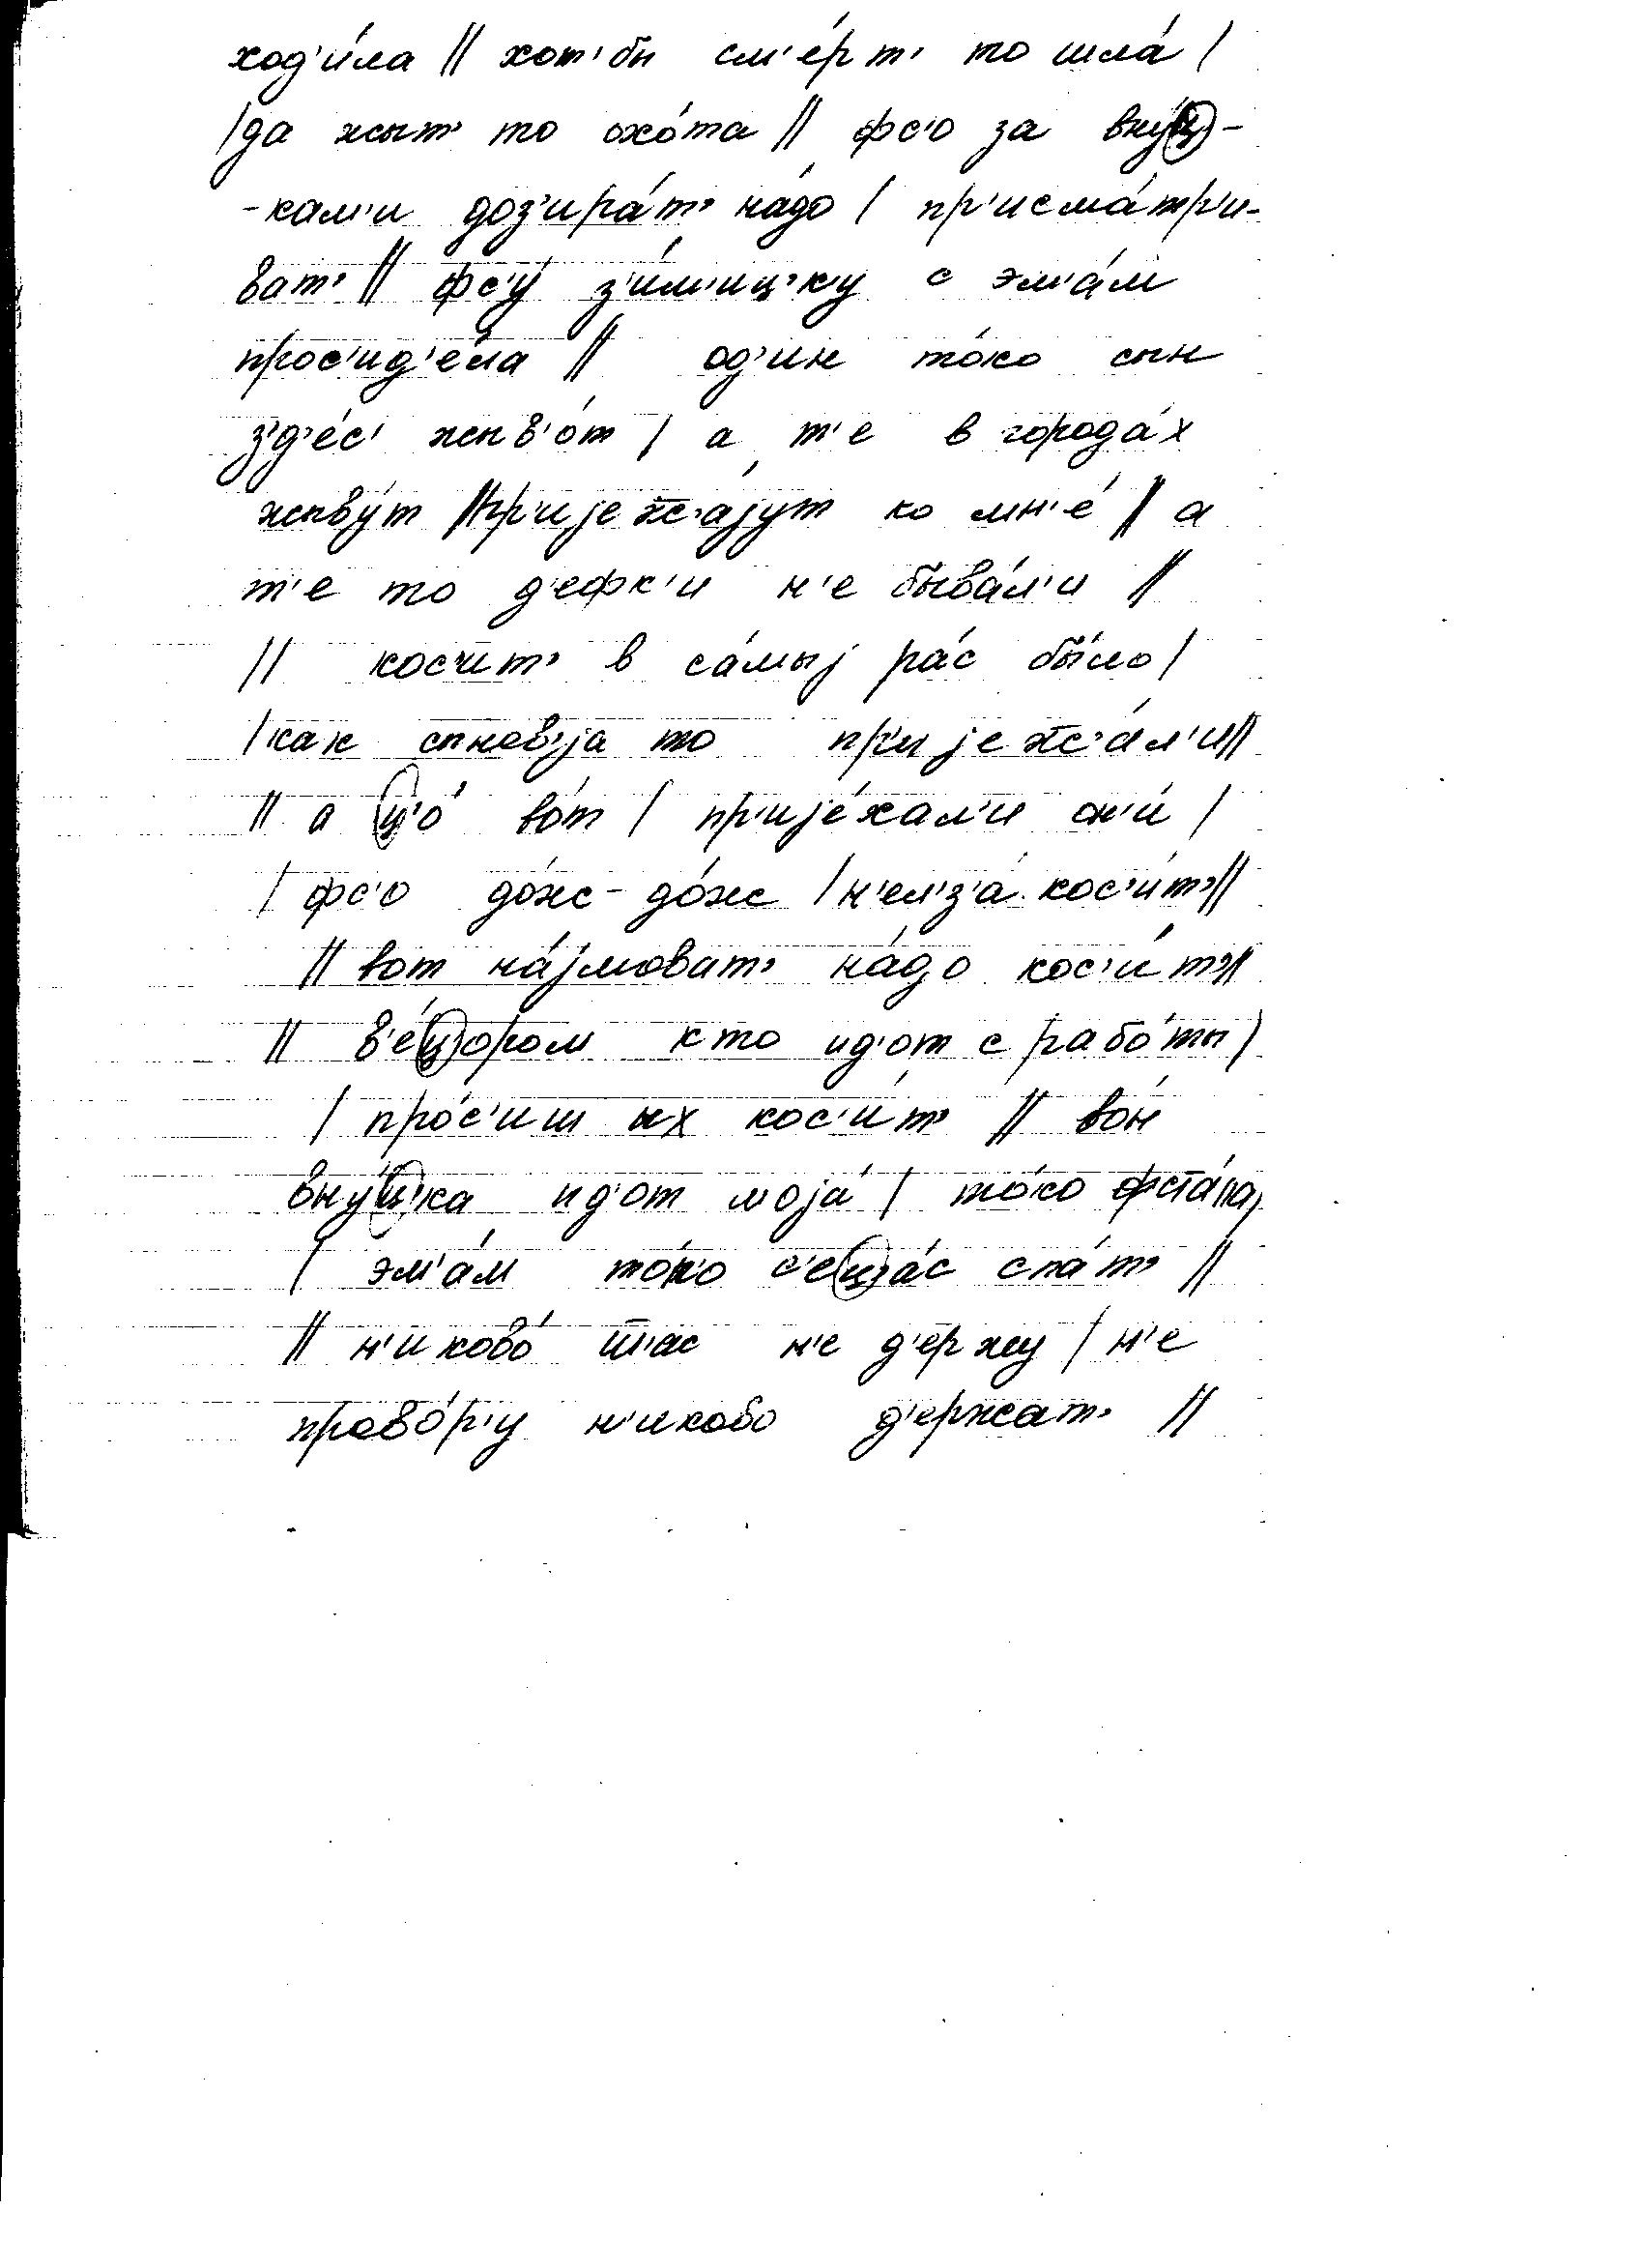 ход'и́ла || хот' бы см'е́рт' то шла́ |
| да жыт' то охо́та || фс'о за вну́ц'-
-кам'и доз'ира́т' на́до | пр'исма́тр'и-
ват' || фс'у́ з'и́м'иц'ку с эм'а́м
прос'ид'е́ла || од'ин то́ко сын
з'д'е́с' жыв'о́т | а т'е в города́х
жыву́т || пр'ијеж̅'а́јут ко мн'е́ || а
т'е то д'ефк'и н'е быва́л'и ||
|| кос'ит' в са́мыј ра́с бы́ло |
| как сыновја́ то пр'ијеж̅'а́л'и ||
|| а ц'о́ во́т | пр'ије́хал'и он'и́ |
| фс'о до́ж-до́ж | н'ел'з'а́ кос'и́т' ||
|| вот на́јмоват' на́до кос'и́т' ||
|| в'е́ц'ором кто ид'от с рабо́ты |
| про́с'иш их кос'и́т' || во́н
вну́ц'ка ид'от моја́ | то́ко фста́ла,
| эм'а́м то́ко с'ец'а́с спа́т' ||
|| н'иково́ ш̅'ас н'е д'ержу | н'е
прово́р'у н'иково д'ержат' ||